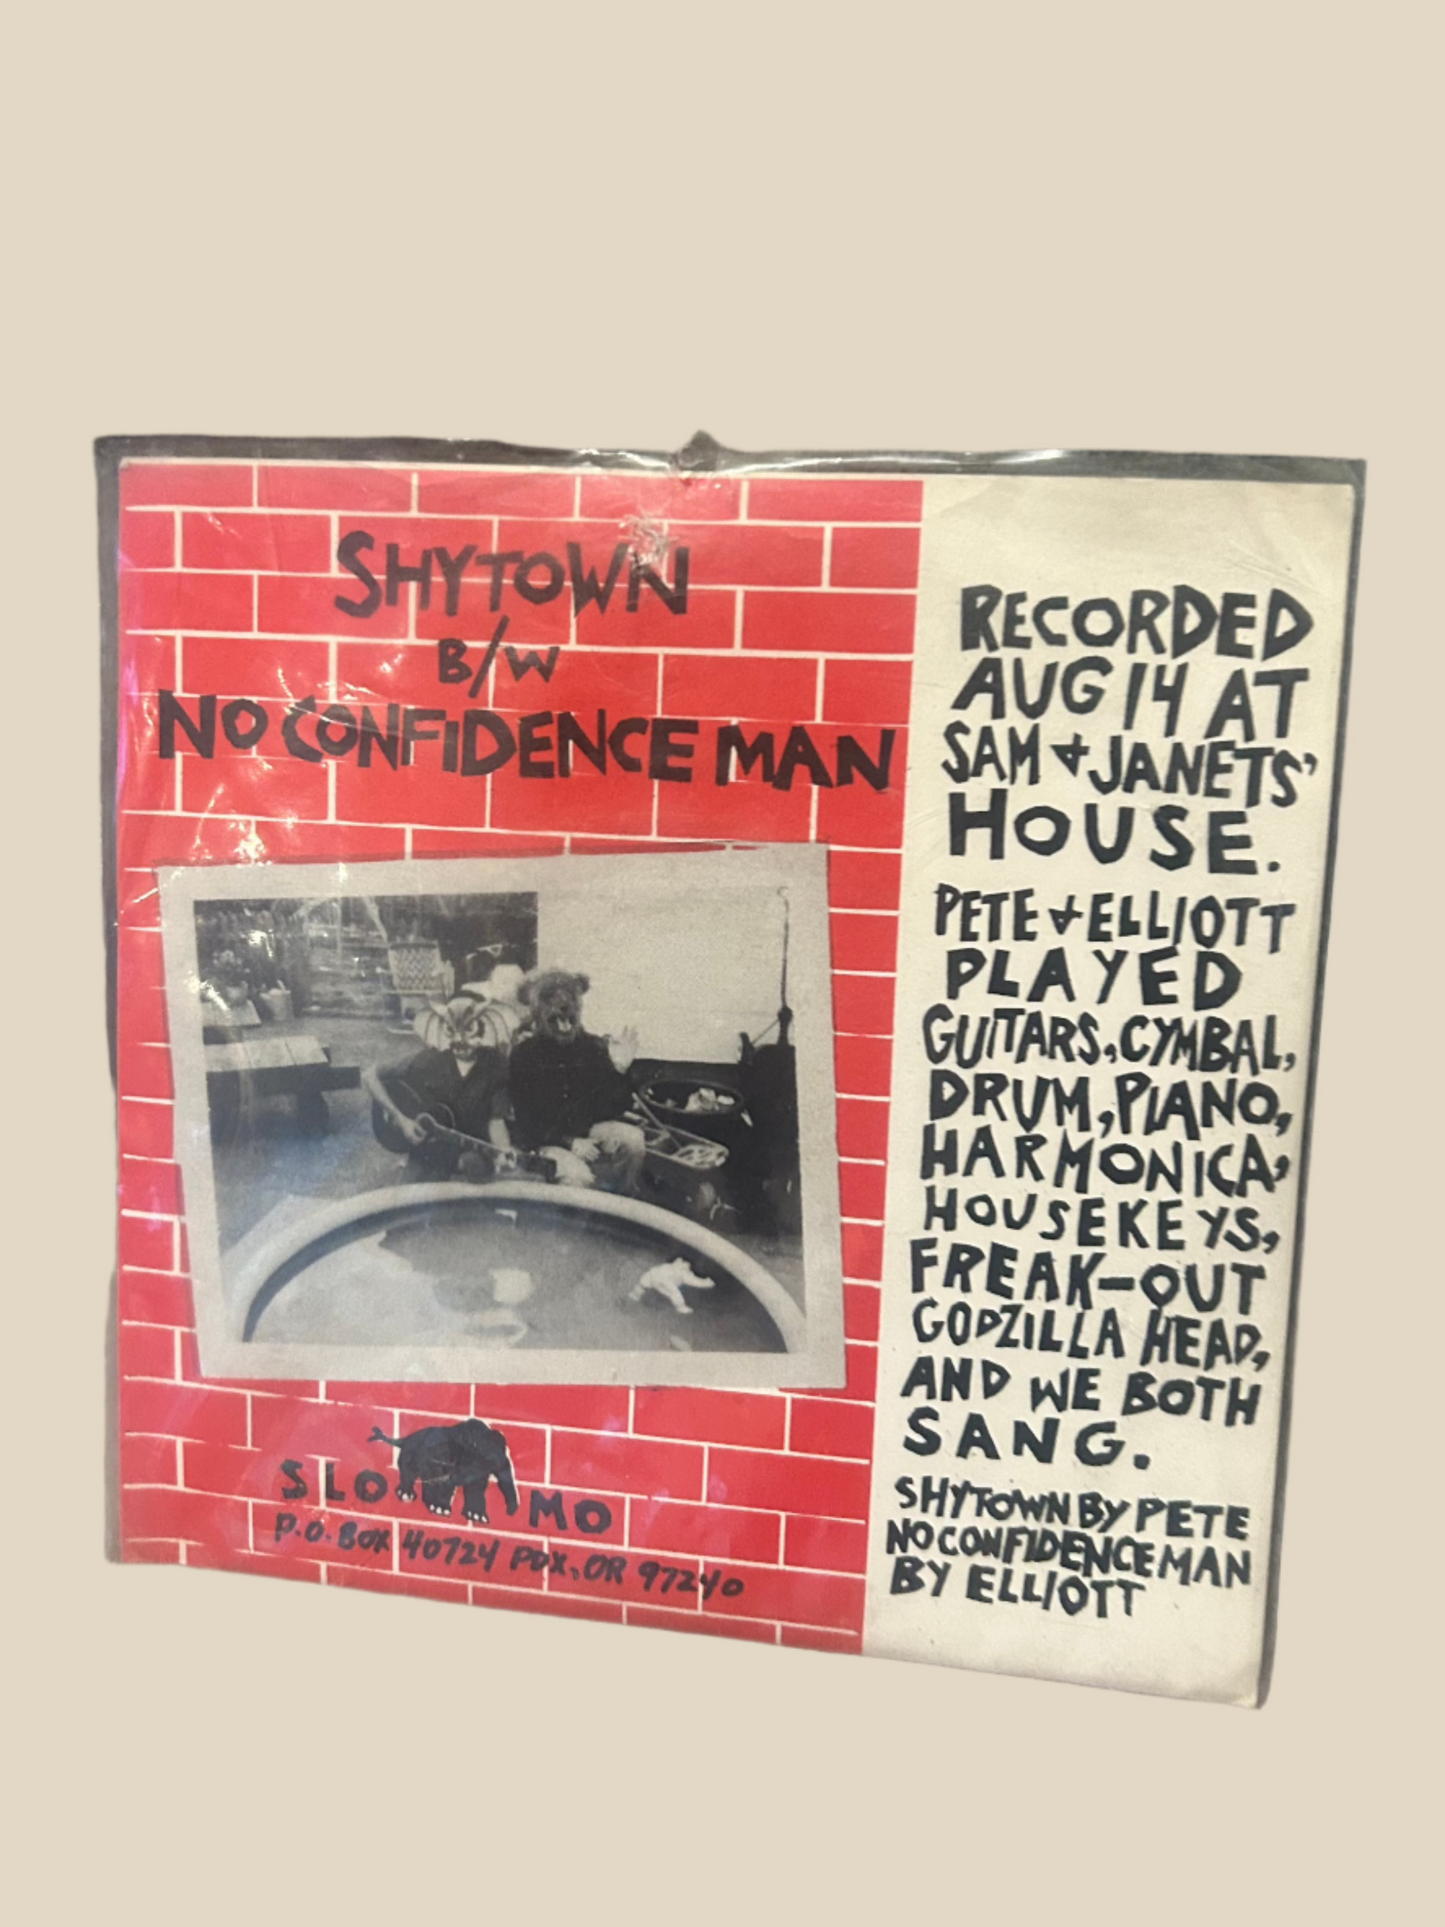 SHYTOWN
B/W
NO CONFIDENCE MAN
SLO MO
P.O. BOX 40724 PDX, OR 97240
RECORDED
AUG 14 AT
SAM & JANETS'
HOUSE.
PETE & ELLIOTT
PLAYED
GUITARS, CYMBAL,
DRUM, PIANO,
HARMONICA,
HOUSEKEYS,
FREAK-OUT
GODZILLA HEAD,
AND WE BOTH
SANG.
SHYTOWN BY PETE
NO CONFIDENCE MAN
BY ELLIOTT